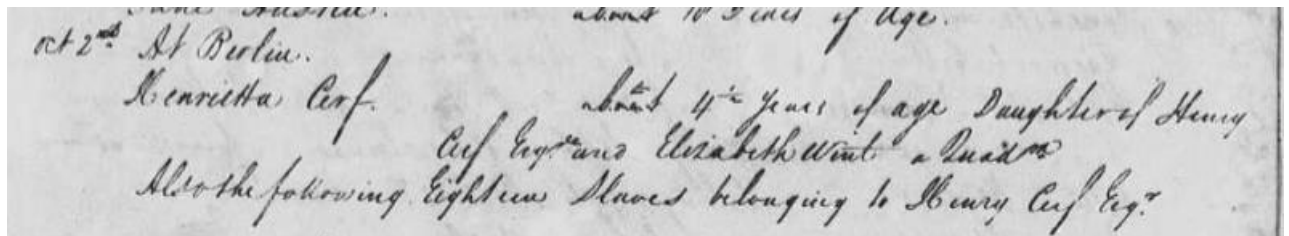 about 10 Years of Age.
Oct 2nd At Berlin.
Henrietta Cerf. about 4½ Years of age Daughter of Henry
Cerf Esqre and Elizabeth Wint a Quadn
Also the following Eighteen Slaves belonging to Henry Cerf Esqr.